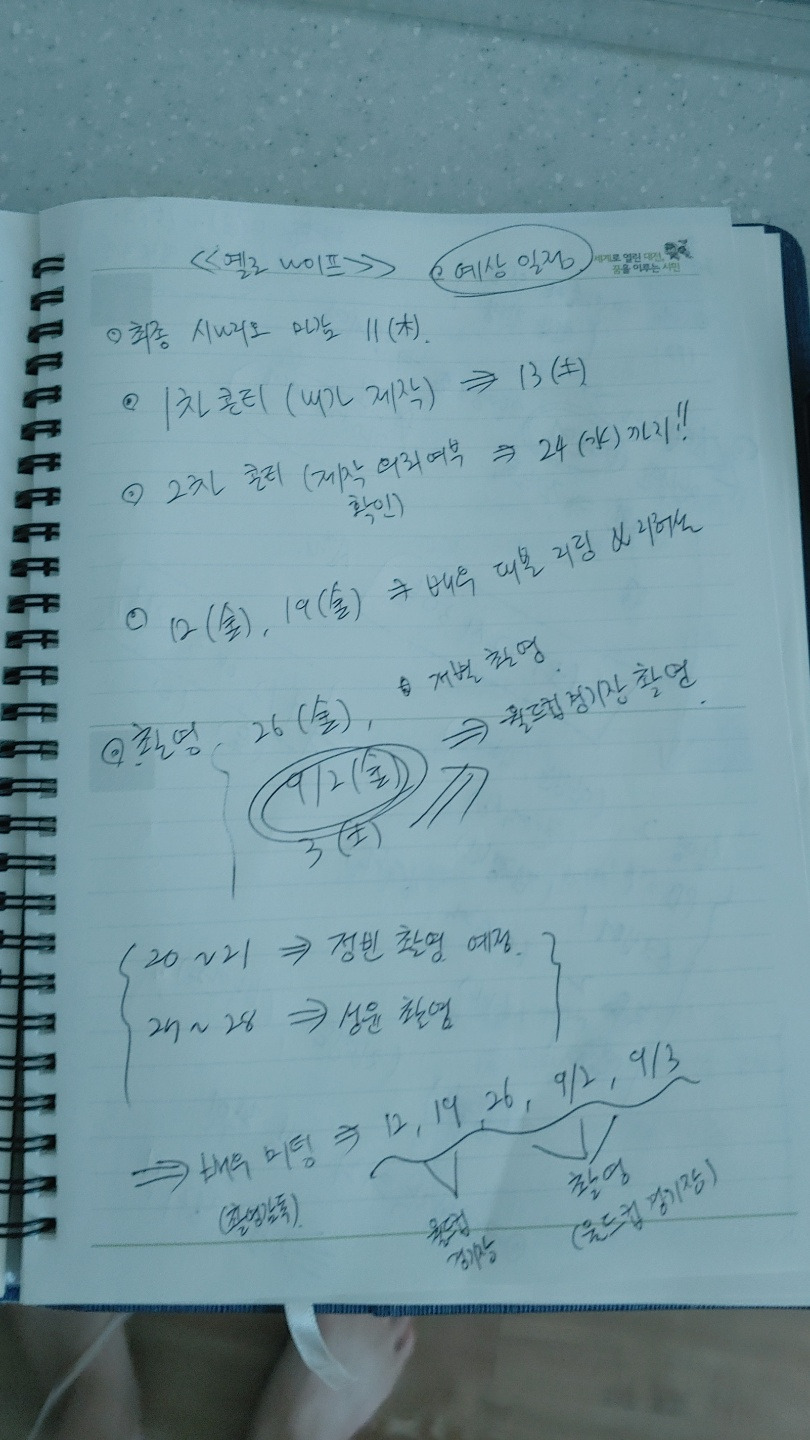 <<옐로 나이프>> 예상 일정
세계로 열린 대전,
꿈을 이루는 시민
최종 시나리오 마감 11(木).
1차 콘티 (내가 제작) ⇒ 13(土)
2차 콘티 (제작 의뢰여부 ⇒ 24(水)까지!!
확인)
12(金), 19(金) ⇒ 배우 대본 리딩 & 리허설
촬영 26(金), 개별 촬영.
9/2(金) ⇒ 월드컵경기장 촬영.
3(土)
20~21 ⇒ 정빈 촬영 예정.
27~28 ⇒ 성윤 촬영
⇒ 배우 미팅 ⇒ 12, 19, 26, 9/2, 9/3
(촬영감독) 월드컵 경기장 촬영
(월드컵 경기장)